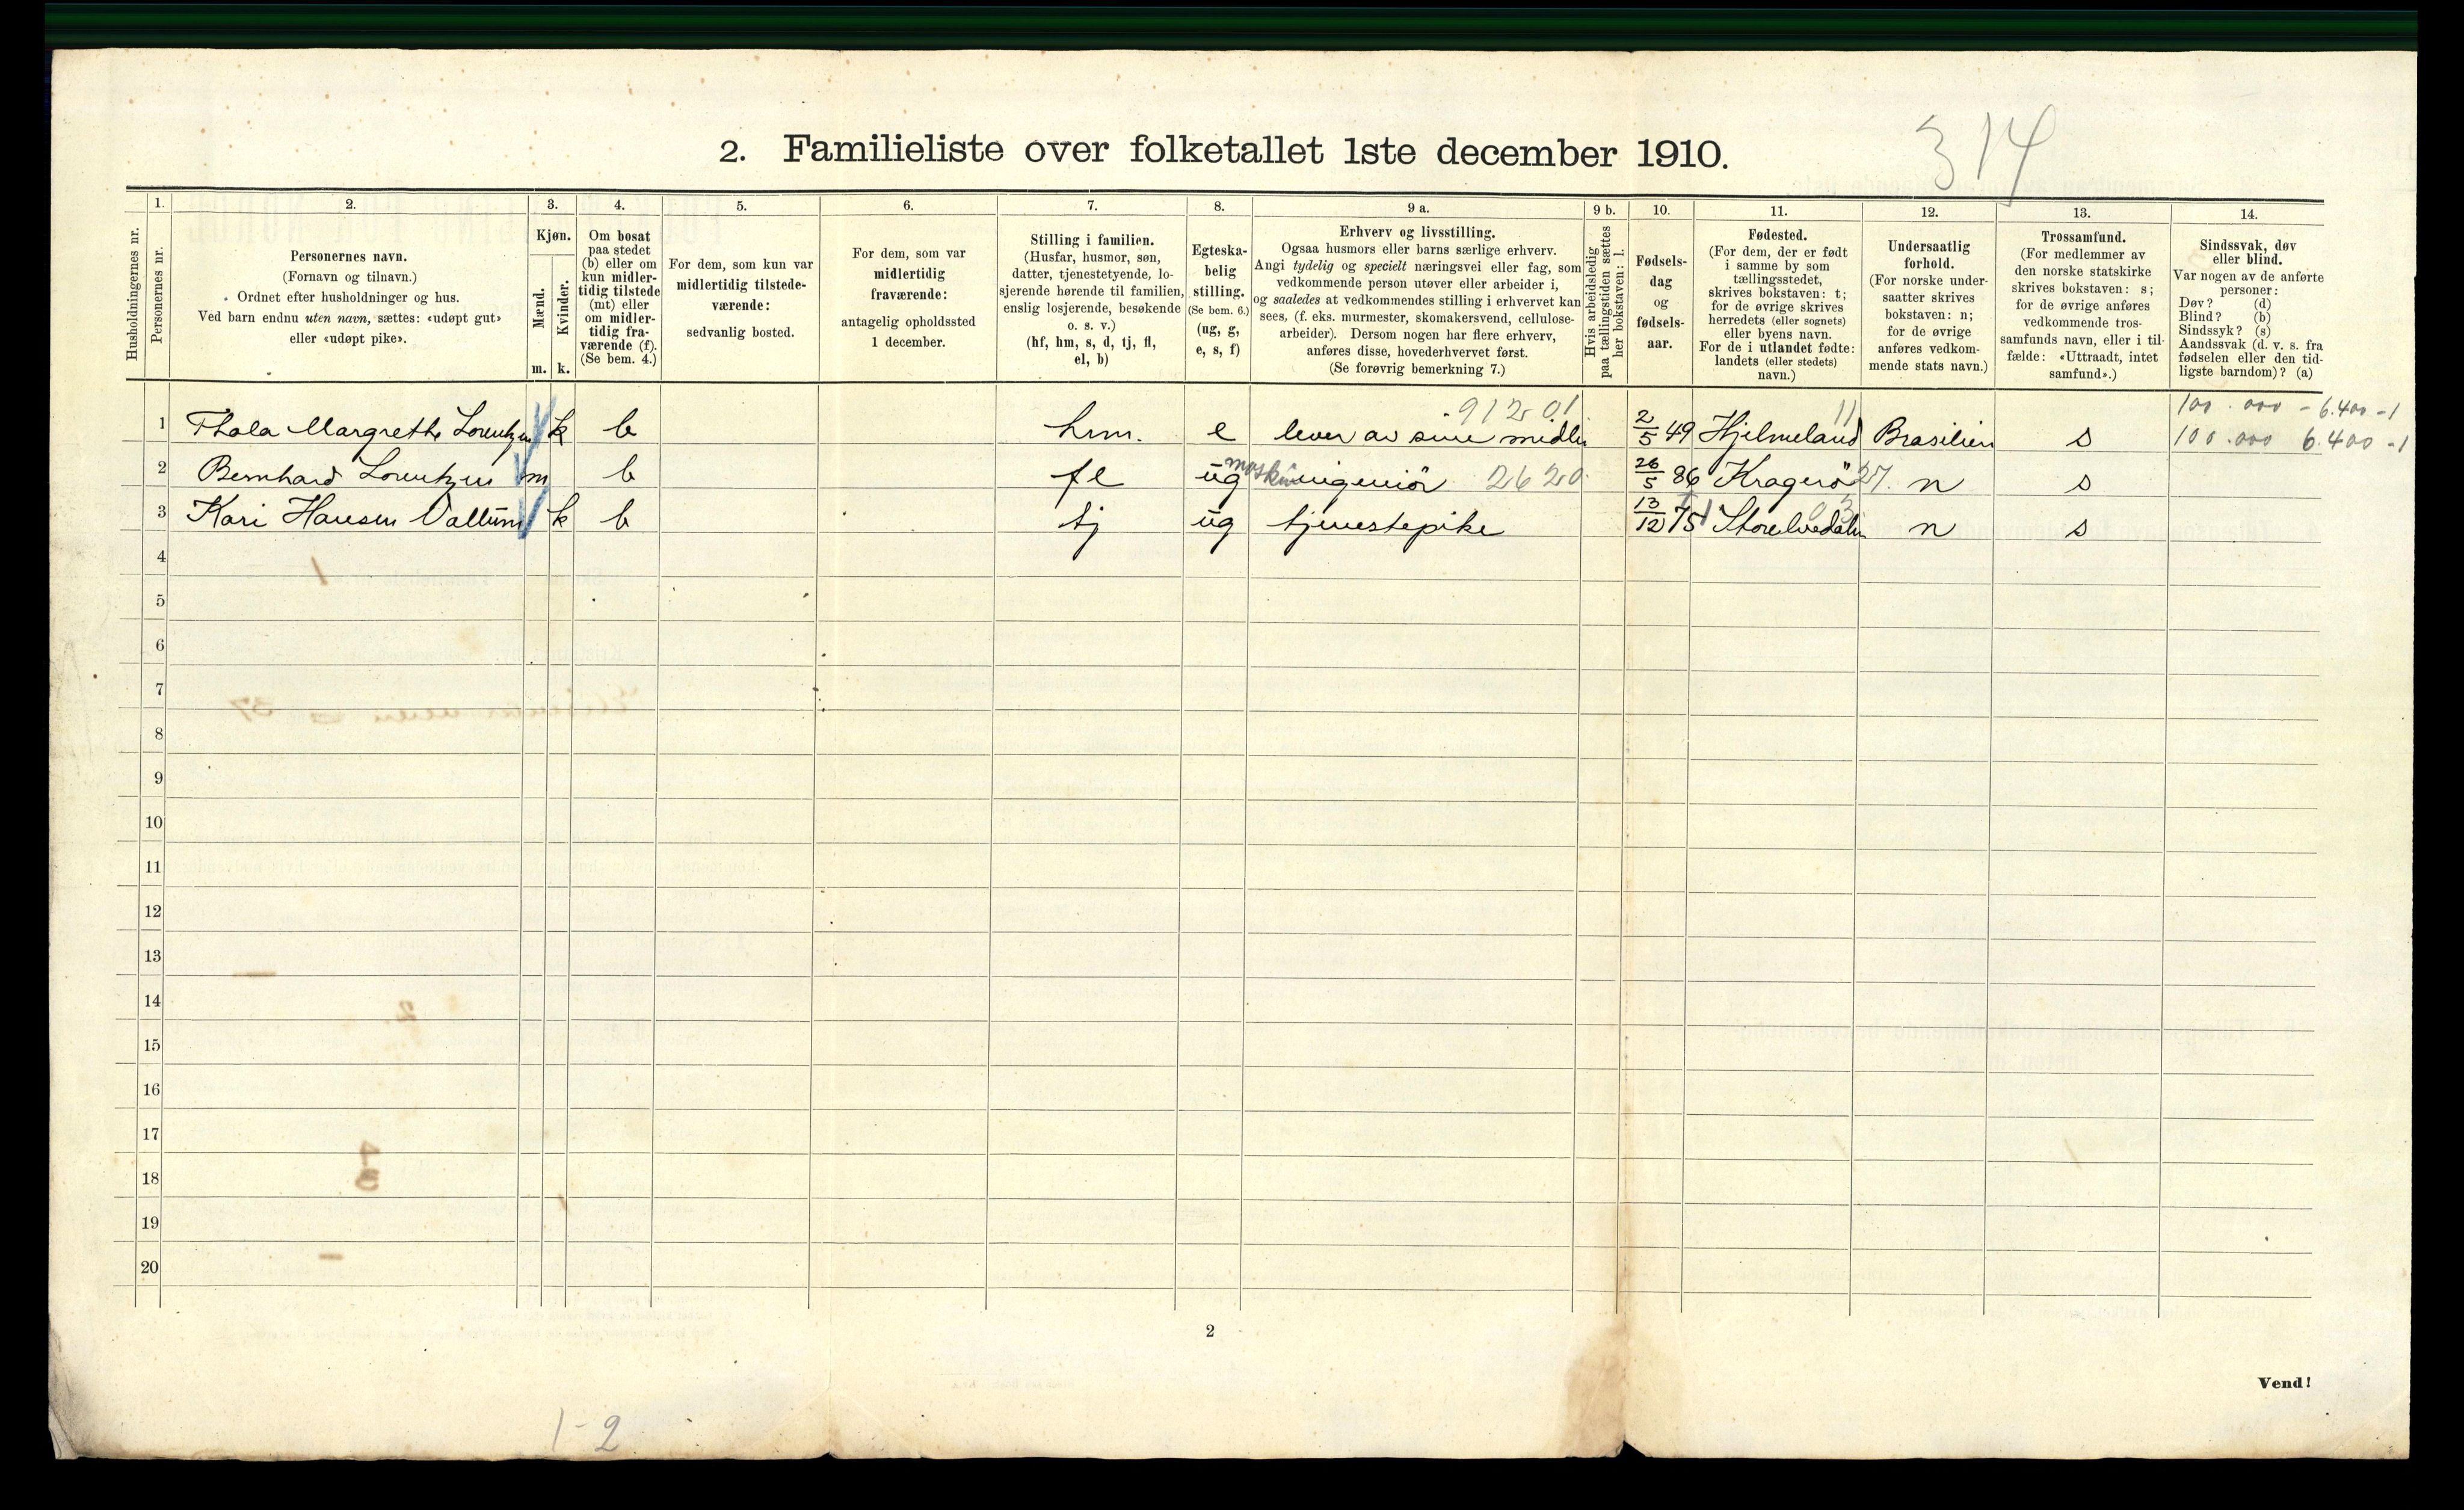 2. Familieliste over folketallet 1ste december 1910.
314
Husholdningernes nr.
1.
Personernes nr.
2.
Personernes navn.
(Fornavn og tilnavn.)
Ordnet efter husholdninger og hus.
Ved barn endnu uten navn, sættes: «udøpt gut»
eller «udøpt pike».
3.
Kjøn.
Mænd.
Kvinder.
m. k.
4.
Om bosat
paa stedet
(b) eller om
kun midler-
tidig tilstede
(mt) eller
om midler-
tidig fra-
værende (f).
(Se bem. 4.)
5.
For dem, som kun var
midlertidig tilstede-
værende:
sedvanlig bosted.
6.
For dem, som var
midlertidig
fraværende:
antagelig opholdssted
1 december.
7.
Stilling i familien.
(Husfar, husmor, søn,
datter, tjenestetyende, lo-
sjerende hørende til familien,
enslig losjerende, besøkende
o. s. v.)
(hf, hm, s, d, tj, fl,
el, b)
8.
Egteska-
belig
stilling.
(Se bem. 6.)
(ug, g,
e, s, f)
9 a.
Erhverv og livsstilling.
Ogsaa husmors eller barns særlige erhverv.
Angi tydelig og specielt næringsvei eller fag, som
vedkommende person utøver eller arbeider i,
og saaledes at vedkommendes stilling i erhvervet kan
sees, (f. eks. murmester, skomakersvend, cellulose-
arbeider). Dersom nogen har flere erhverv,
anføres disse, hovederhvervet først.
(Se forøvrig bemerkning 7.)
9 b.
Hvis arbeidsledig
paa tællingstiden sættes
her bokstaven: l.
10.
Fødsels-
dag
og
fødsels-
aar.
11.
Fødested.
(For dem, der er født
i samme by som
tællingsstedet,
skrives bokstaven: t;
for de øvrige skrives
herredets (eller sognets)
eller byens navn.
For de i utlandet fødte:
landets (eller stedets)
navn.)
12.
Undersaatlig
forhold.
(For norske under-
saatter skrives
bokstaven: n;
for de øvrige
anføres vedkom-
mende stats navn.)
13.
Trossamfund.
(For medlemmer av
den norske statskirke
skrives bokstaven: s;
for de øvrige anføres
vedkommende tros-
samfunds navn, eller i til-
fælde: «Uttraadt, intet
samfund».)
14.
Sindssvak, døv
eller blind.
Var nogen av de anførte
personer:
Døv? (d)
Blind? (b)
Sindssyk? (s)
Aandssvak (d. v. s. fra
fødselen eller den tid-
ligste barndom)? (a)
91201 11 100.000 - 6.400 - 1
1 Thala Margrethe Lorentzen k b hm. e lever av sine midler 2/5 49 Hjelmeland Brasilien s 100.000 6.400 - 1
2 Bernhard Lorentzen m b fl ug maskiningeniör 2620 26/5 86 Kragerö 27. n s
3 Kari Hansen Vallum k b tj ug tjenestepike 13/12 75 Storelvedalen 03 n s
4
5
6
7
8
9
10
11
12
13
14
15
16
17
18
19
20
2
Vend!
1-2